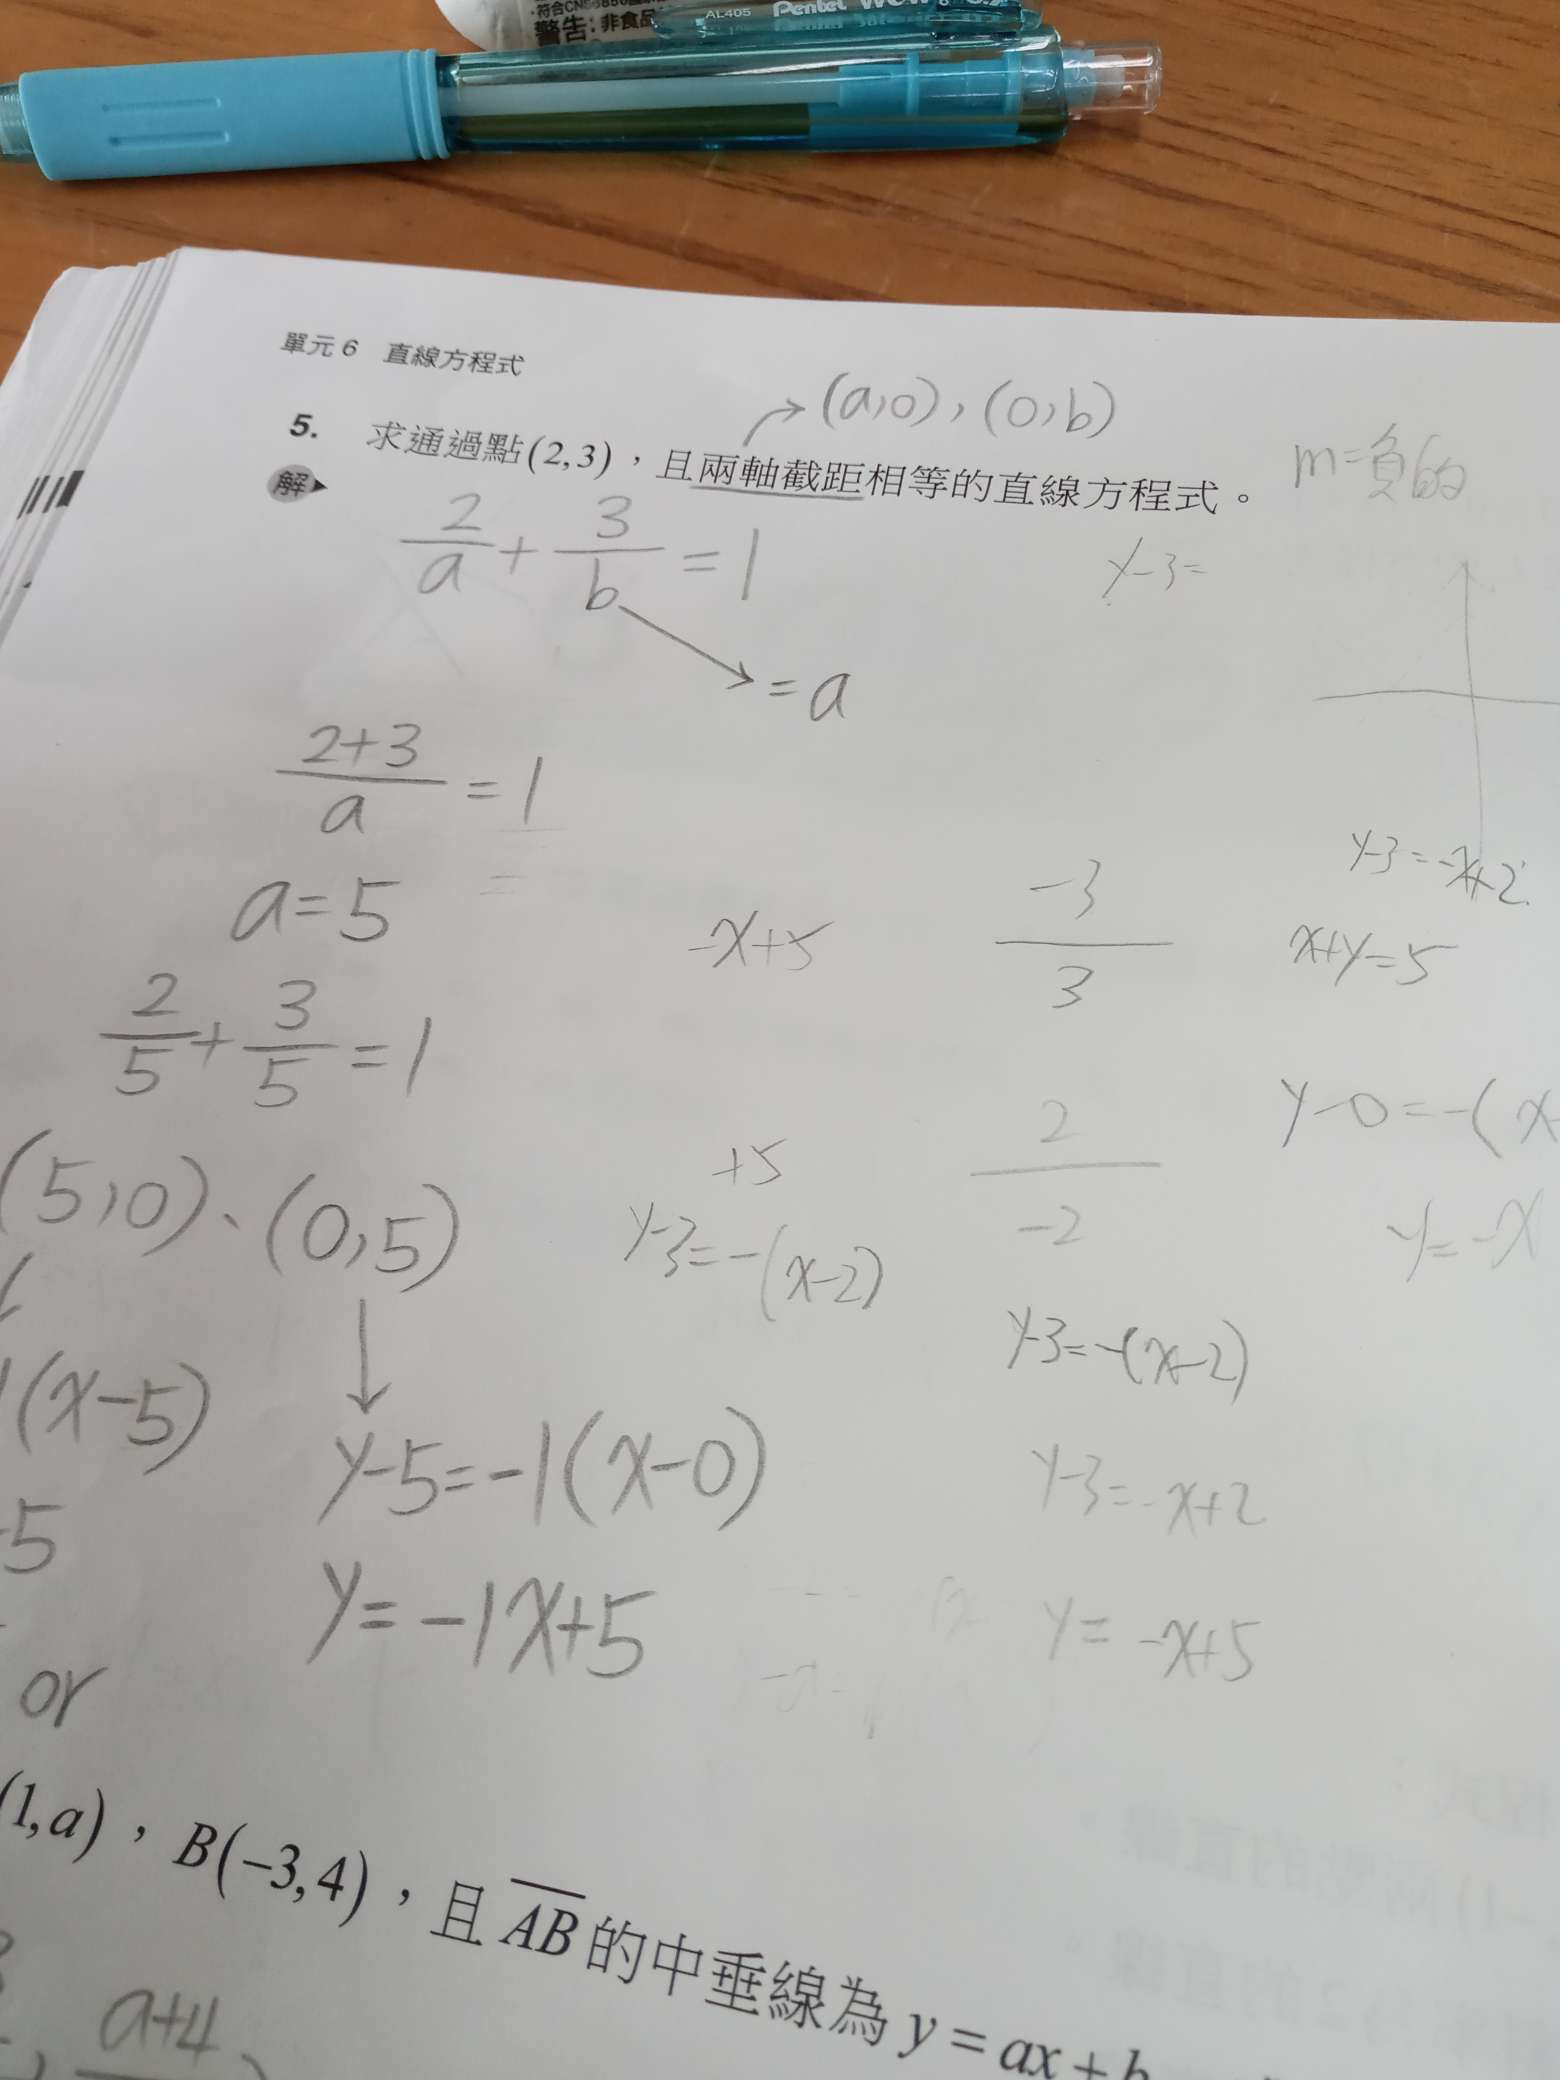 警告:非食品
AL405 Pentel
單元 6 直線方程式
(a,0),(0,b)
5. 求通過點(2,3),且兩軸截距相等的直線方程式。
m=負的
解
2/a + 3/b = 1
y-3=
= a
(2+3)/a = 1
a=5
-x+5
-3/3
y-3=-x+2
x+y=5
2/5 + 3/5 = 1
(5,0)、(0,5)
+5
y-3=-(x-2)
2/-2
y-0=-(x-
y=-x
y-3=-(x-2)
(x-5)
y-5=-1(x-0)
y-3=-x+2
-5
y=-1x+5
y=-x+5
or
(1,a),B(-3,4),且 AB 的中垂線為 y=ax+b
a+4